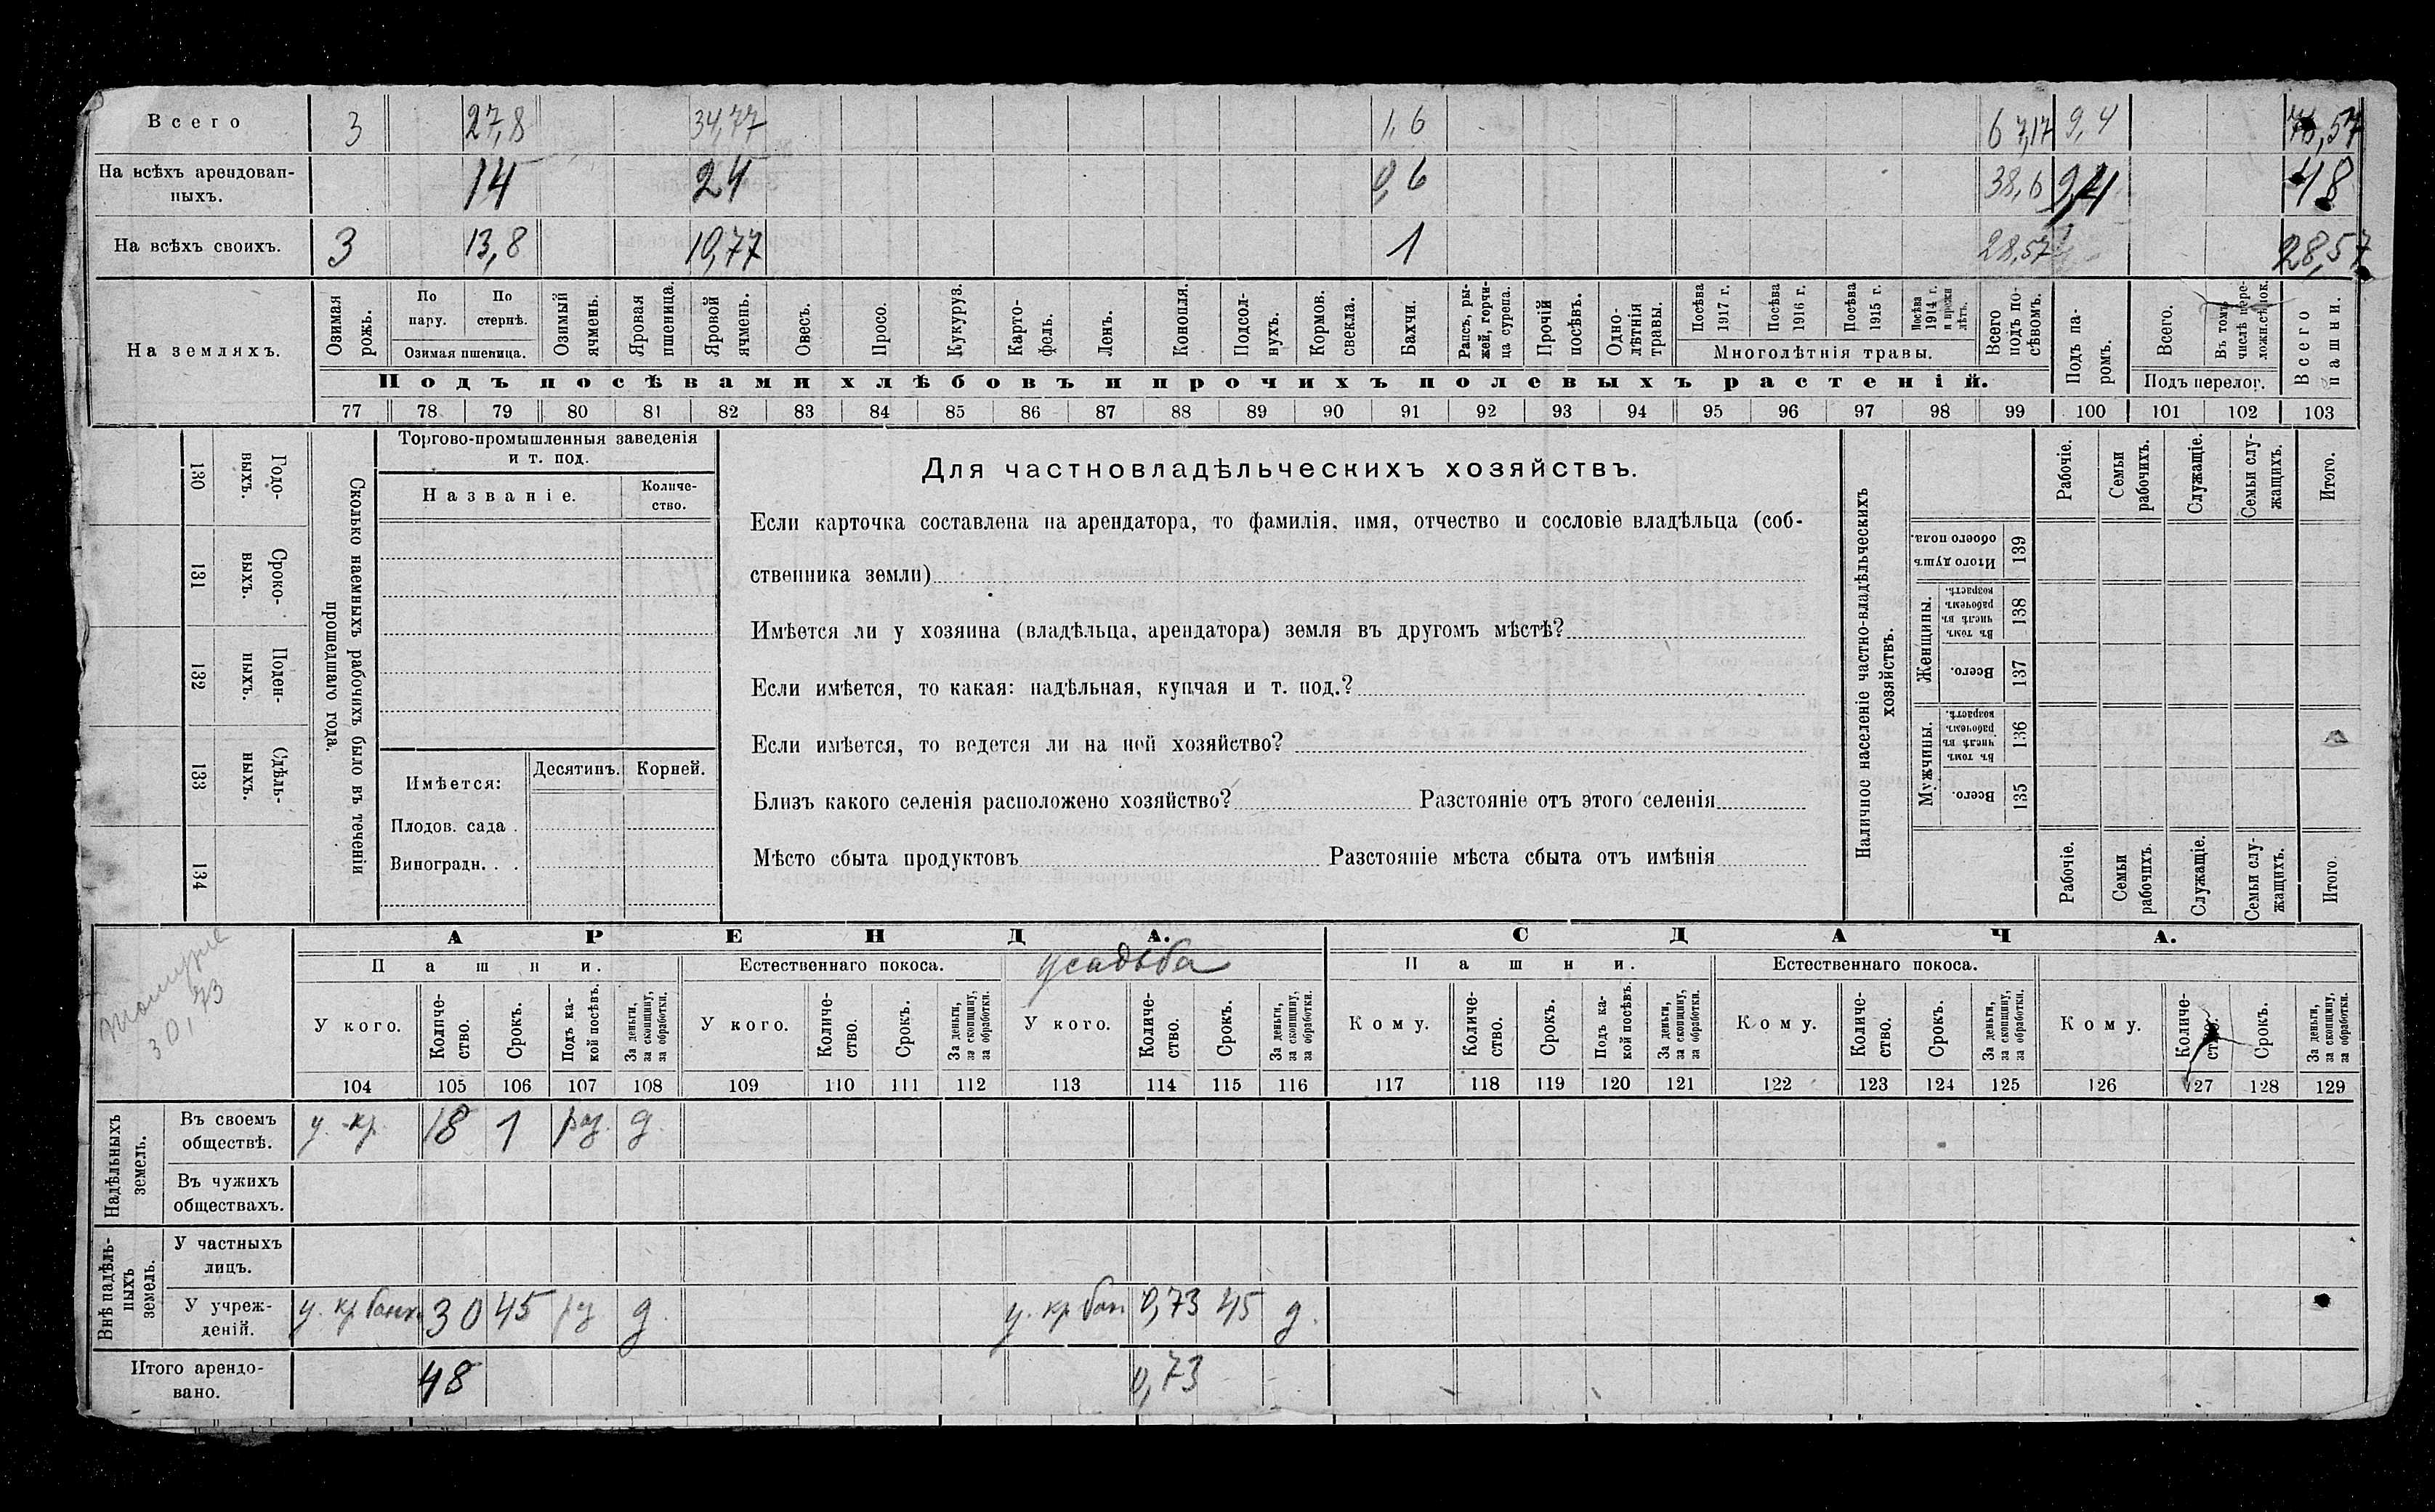 Всего 3 27,8 34,77 1,6 67,17 9,4 76,57
На всѣхъ арендован-
ныхъ. 14 24 0,6 38,6 9,4 48
На всѣхъ своихъ. 3 13,8 10,77 1 28,57 28,57
На земляхъ.
Озимая рожь.
По пару.
По стернѣ.
Озимая пшеница.
Озимый ячмень.
Яровая пшеница.
Яровой ячмень.
Овесъ.
Просо.
Кукуруз.
Карто-
фель.
Ленъ.
Конопля.
Подсол-
нухъ.
Кормов.
свекла.
Бахчи.
Рапсъ, ры-
жей, горчи-
ца сурепа.
Прочій
посѣвъ.
Одно-
лѣтнія
травы.
Посѣва
1917 г.
Посѣва
1916 г.
Посѣва
1915 г.
Посѣва
1914 г.
и прежн
лѣтъ.
Многолѣтнія травы.
Всего
подъ по-
сѣвомъ.
Подъ па-
ромъ.
Всего.
Въ томъ
числѣ пере-
ложн.сѣнок.
Подъ перелог.
Всего
пашни.
Подъ посѣвами хлѣбовъ и прочихъ полевыхъ растеній.
77 78 79 80 81 82 83 84 85 86 87 88 89 90 91 92 93 94 95 96 97 98 99 100 101 102 103
130 Годо-
выхъ.
131 Сроко-
выхъ.
132 Поден-
ныхъ.
133 Сдѣль-
ныхъ.
134
Сколько наемныхъ рабочихъ было въ теченіи
прошедшаго года.
Торгово-промышленныя заведенія
и т. под.
Названіе.
Количе-
ство.
Имѣется:
Десятинъ.
Корней.
Плодов. сада .
Виноградн. . .
Для частновладѣльческихъ хозяйствъ.
Если карточка составлена на арендатора, то фамилія, имя, отчество и сословіе владѣльца (соб-
ственника земли)
Имѣется ли у хозяина (владѣльца, арендатора) земля въ другомъ мѣстѣ?
Если имѣется, то какая: надѣльная, купчая и т. под.?
Если имѣется, то ведется ли на ней хозяйство?
Близъ какого селенія расположено хозяйство? Разстояніе отъ этого селенія
Мѣсто сбыта продуктовъ Разстояніе мѣста сбыта отъ имѣнія
Наличное населеніе частно-владѣльческихъ
хозяйствъ.
Рабочіе.
Семьи
рабочихъ.
Служащіе.
Семьи слу-
жащихъ.
Итого.
Итого душъ
обоего пола.
139
Женщины.
Въ томъ
числѣ въ
рабочемъ
возрастѣ.
138
Всего.
137
Мужчины.
Въ томъ
числѣ въ
рабочемъ
возрастѣ.
136
Всего.
135
Рабочіе.
Семьи
рабочихъ.
Служащіе.
Семьи слу-
жащихъ.
Итого.
30,73
АРЕНДА.
СДАЧА.
Пашни.
Естественнаго покоса.
усадьба
Пашни.
Естественнаго покоса.
У кого.
Количе-
ство.
Срокъ.
Подъ ка-
кой посѣвъ.
За деньги,
за скопщину,
за обработки.
У кого.
Количе-
ство.
Срокъ.
За деньги,
за скопщину,
за обработки.
У кого.
Количе-
ство.
Срокъ.
За деньги,
за скопщину,
за обработки.
Кому.
Количе-
ство.
Срокъ.
Подъ ка-
кой посѣвъ.
За деньги,
за скопщину,
за обработки.
Кому.
Количе-
ство.
Срокъ.
За деньги,
за скопщину,
за обработки.
Кому.
Количе-
ство.
Срокъ.
За деньги,
за скопщину,
за обработки.
104 105 106 107 108 109 110 111 112 113 114 115 116 117 118 119 120 121 122 123 124 125 126 127 128 129
Надѣльныхъ
земель.
Въ своемъ
обществѣ. у. кр. 18 1 рз. д.
Въ чужихъ
обществахъ.
Внѣ надѣль-
ныхъ
земель.
У частныхъ
лицъ.
У учреж-
деній. у. кр банк 30 45 рз д. у. кр бан 0,73 45 д.
Итого арендо-
вано. 48 0,73